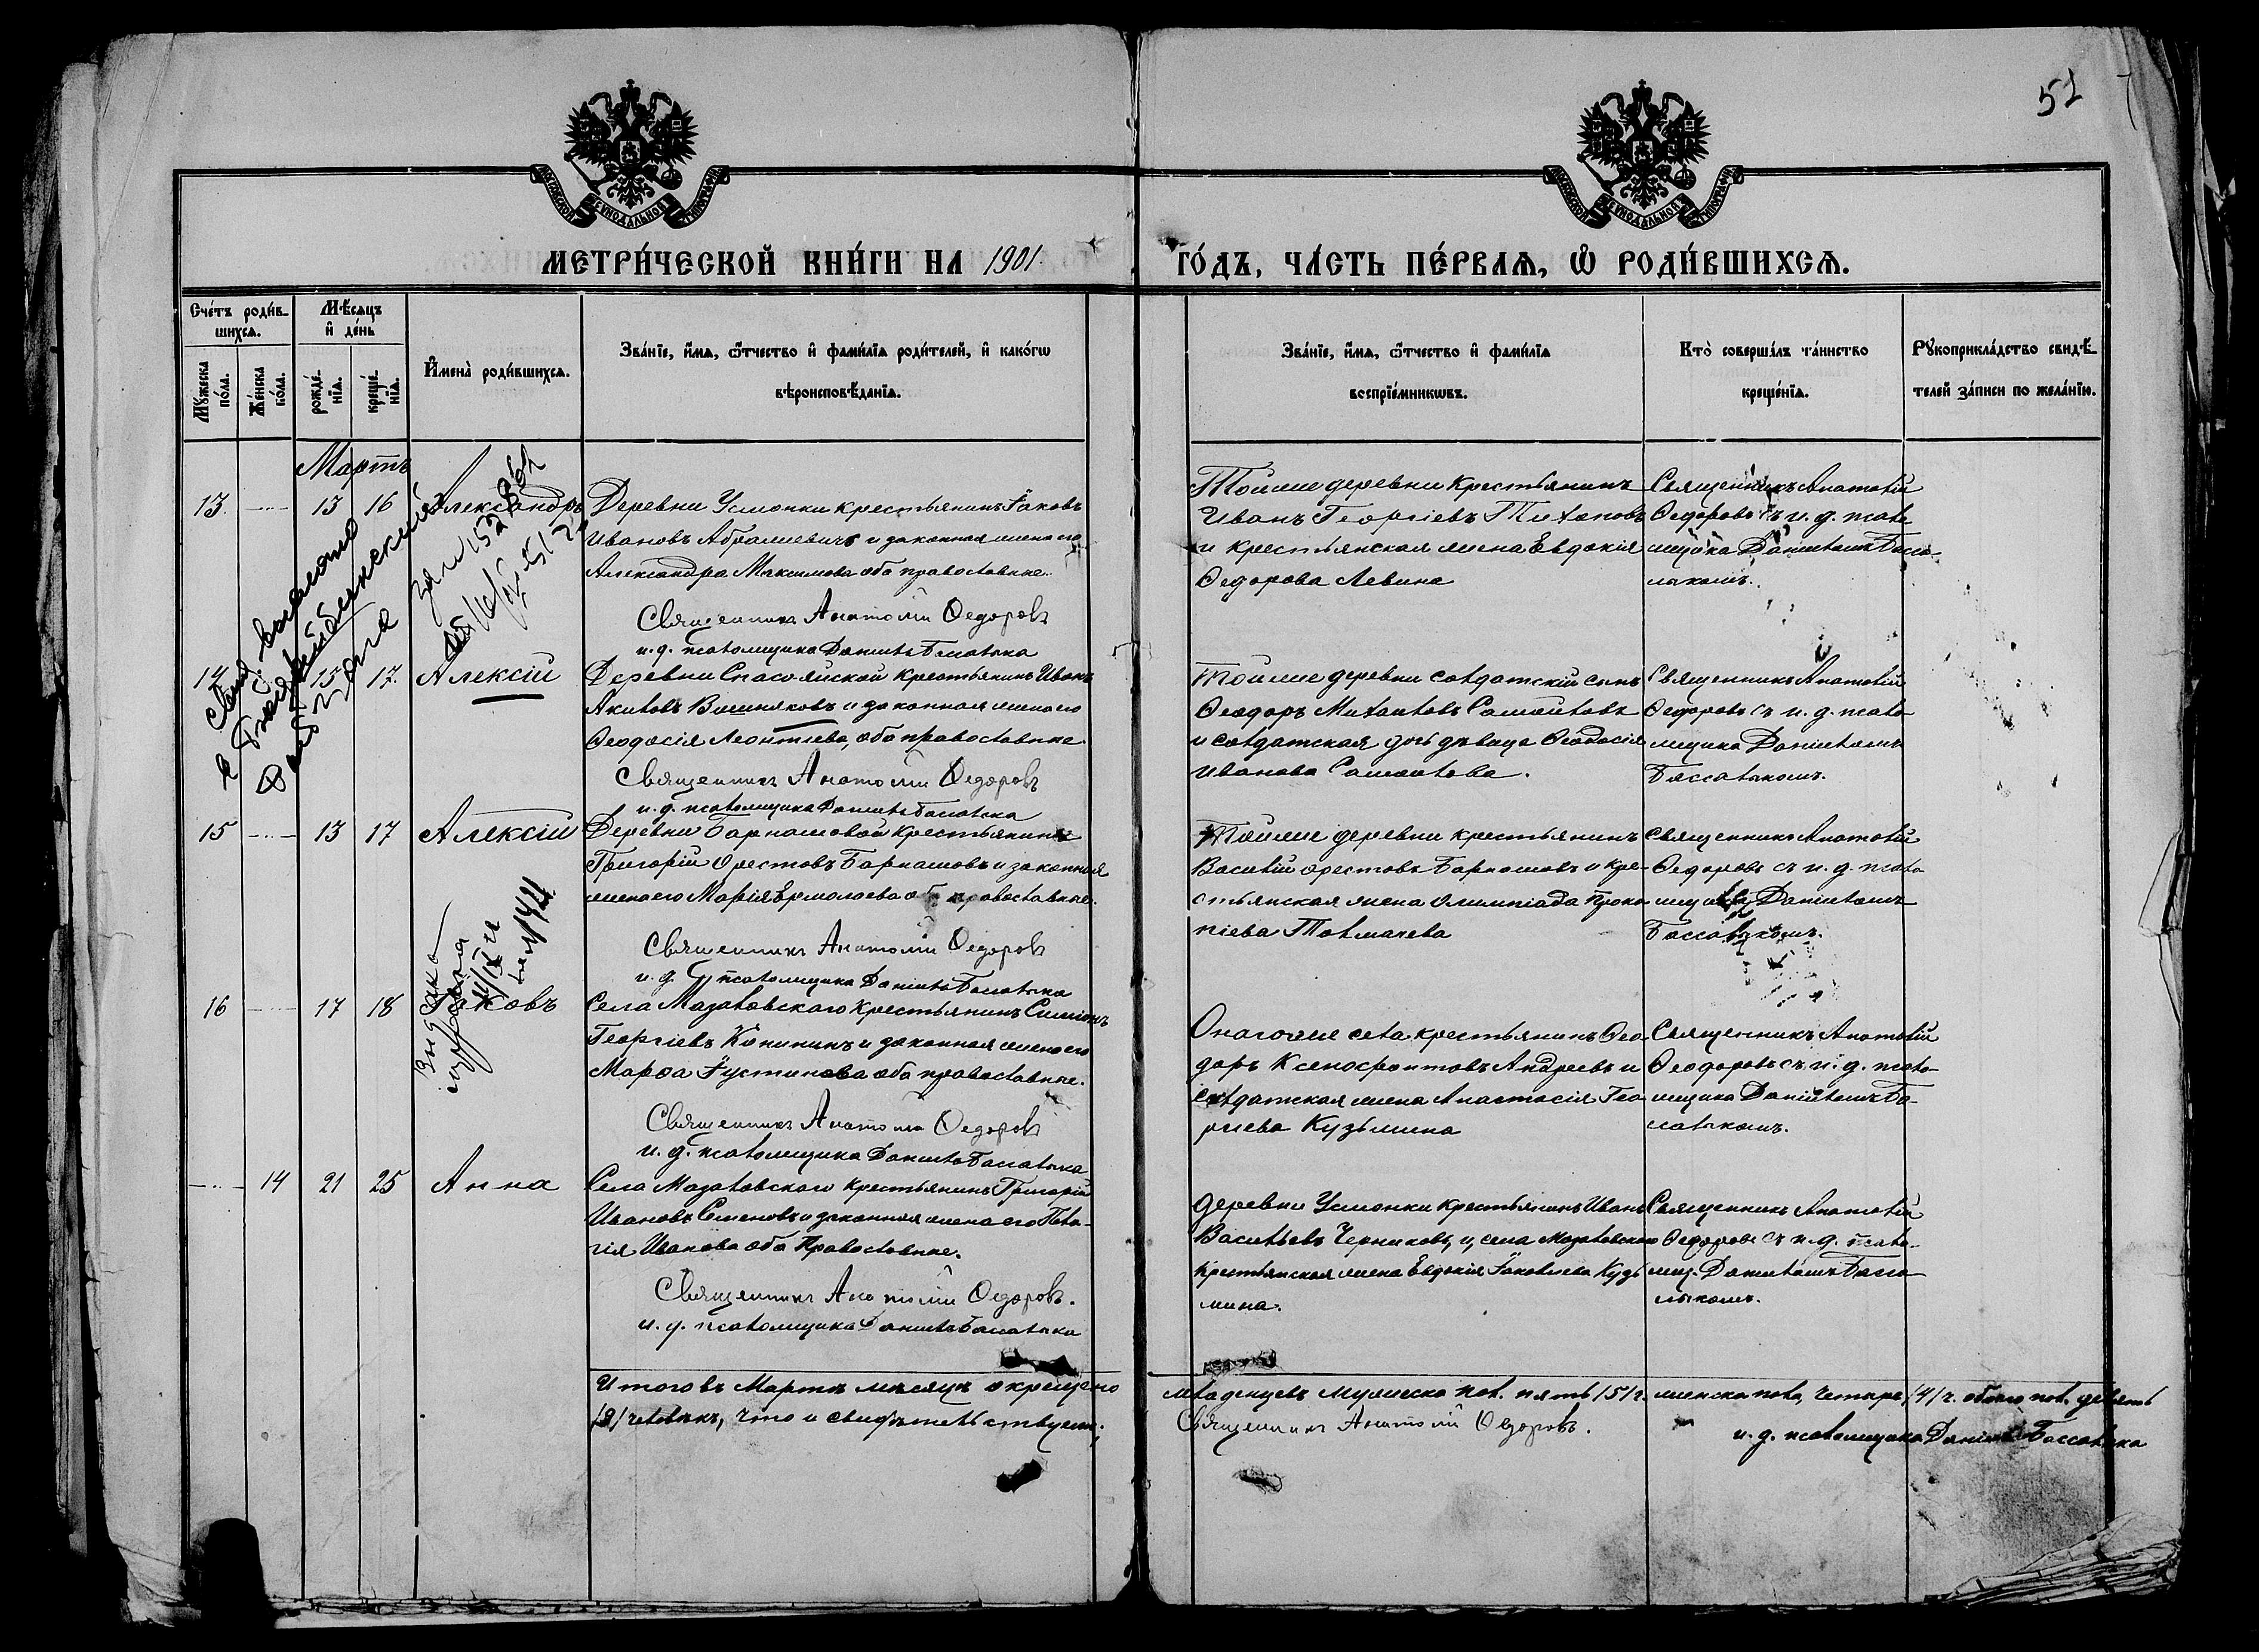 52
МОСКОВСКОЙ СѴНОДАЛЬНОЙ ТИПОГРАФІИ
МОСКОВСКОЙ СѴНОДАЛЬНОЙ ТИПОГРАФІИ
МЕТРИ́ЧЕСКОЙ КНИ́ГИ НА 1901. ГО́ДЪ, ЧА́СТЬ ПЕ́РВАѦ, Ѡ РОДИ́ВШИХСѦ.
Сче́тъ роди́в-
шихсѧ.
Мꙋжеска по́ла.
Же́нска по́ла.
Мѣ́сѧцъ и де́нь
рожде́-нїѧ.
креще́-нїѧ.
Имена̀ роди́вшихсѧ.
Зва́нїе, и́мѧ, ѻ҆́тчество и фами́лїѧ роди́телей, и како́гѡ
вѣроисповѣ́данїѧ.
Зва́нїе, и́мѧ, ѻ҆́тчество и фами́лїѧ
воспрїе́мникѡвъ.
Кто̀ соверша́лъ та́инство
креще́нїѧ.
Рꙋкоприкла́дство свидѣ́-
телей за́писи по жела́нїю.
Мартъ
13 13 16 Александръ
Деревни Усмонки крестьянинъ Іаковъ
Ивановъ Абрамевичъ и законная жена его
Александра Максимова оба православные.
Священникъ Анатолій Ѳедоровъ
и. д. псаломщика Даніилъ Бассалыка
Тойже деревни крестьянинъ
Иванъ Георгіевъ Тихоновъ
и крестьянская жена Евдокія
Ѳедорова Левина
Священникъ Анатолій
Ѳедоровъ съ и. д. псало
мщика Даніиломъ Басса-
лыкомъ.
14 15 17. Алексій
Деревни Спасояйской крестьянинъ Иванъ
Акиловъ Вишняковъ и законная жена его
Ѳеодосія Леонтіева, оба православные.
Священникъ Анатолій Ѳедоровъ
и. д. псаломщика Даніилъ Бассалыка
Тойже деревни солдатскій сынъ
Ѳеодоръ Михаиловъ Самойловъ
и солдатская дочь дѣвица Ѳеодосія
Иванова Самойлова.
Священникъ Анатолій
Ѳедоровъ съ и. д. псало-
мщика Даніиломъ
Бассалыкомъ.
15 13 17 Алексій
Деревни Барнашовой крестьянинъ
Григорій Орестовъ Барнашовъ и законная
жена его Марія Ермолаева оба православные.
Священникъ Анатолій Ѳедоровъ
и. д. псаломщика Даніилъ Бассалыка
Тойже деревни крестьянинъ
Василій Орестовъ Барнашовъ и кре-
стьянская жена Олимпіада Проко
піева Толмачева
Священникъ Анатолій
Ѳедоровъ съ и. д. псало
мщика Даніиломъ
Бассалыкомъ.
16 17 18 Іаковъ
Села Мазаловскаго крестьянинъ Симеонъ
Георгіевъ Копинъ и законная жена его
Марѳа Іустинова оба православные.
Священникъ Анатолій Ѳедоровъ
и. д. псаломщика Даніилъ Бассалыка
Онагоже села крестьянинъ Ѳео
доръ Ксенофонтовъ Андреевъ и
солдатская жена Анастасія Гео
ргіева Кузьмина
Священникъ Анатолій
Ѳеодоровъ съ и. д. псало-
мщика Даніиломъ Ба-
ссалыкомъ.
14 21 25 Анна
Села Мазаловскаго крестьянинъ Григорій
Ивановъ Семеновъ и законная жена его Пела-
гія Иванова оба Православные.
Священникъ Анатолій Ѳедоровъ.
и. д. псаломщика Даніилъ Бассалыка
Деревни Усмонки крестьянинъ Иванъ
Васильевъ Черниковъ, и села Мазаловскаго
крестьянская жена Евдокія Іаковлева Кузь
мина.
Священникъ Анатолій
Ѳедоровъ съ и. д. псало-
мщ. Даніиломъ Басса
лыкомъ.
Итого въ Мартѣ мѣсяцѣ окрещено младенцевъ мужеска пол. пять /5/ ч. женска пола, четыре /4/ ч. обоего пол. девять
/9/ человѣкъ, что и свидѣтельствуемъ: Священникъ Анатолій Ѳедоровъ.
и. д. псаломщика Даніилъ Бассалыка